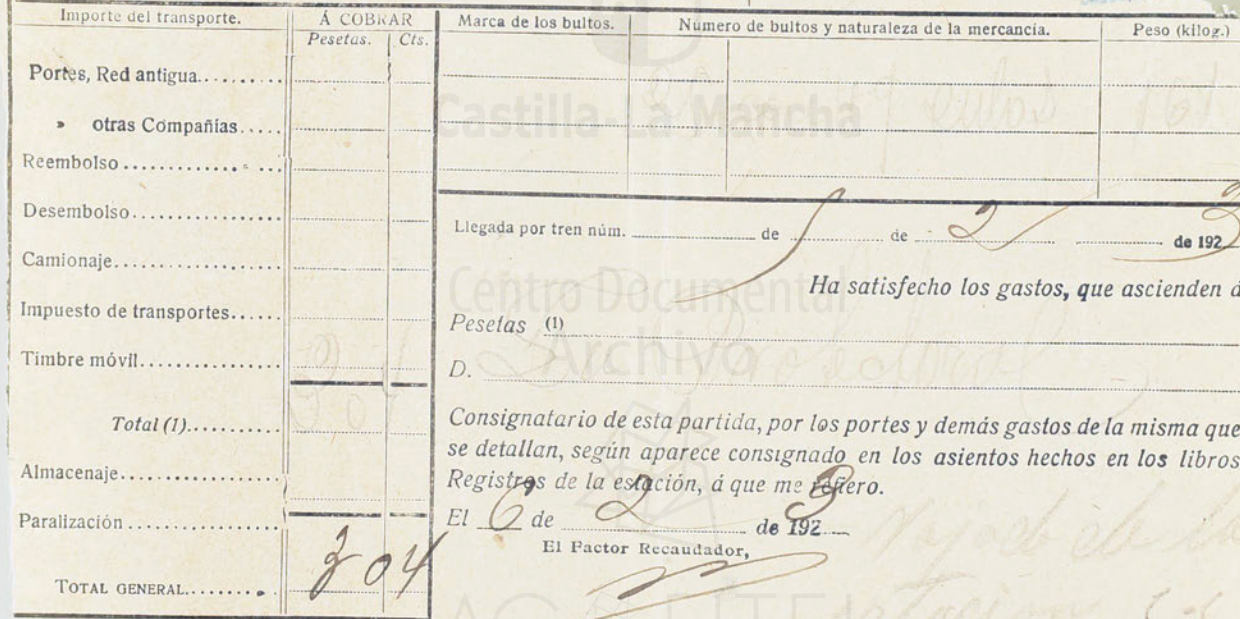 Importe del transporte.
Á COBRAR
Pesetas. Cts.
Portes, Red antigua.........
» otras Compañías.....
Reembolso
Desembolso
Camionaje
Impuesto de transportes......
Timbre móvil
Total (1)
Almacenaje
Paralización
TOTAL GENERAL 3 04
Marca de los bultos. Número de bultos y naturaleza de la mercancía. Peso (kilog.)
Castilla-La Mancha
Llegada por tren núm. de de 2 de 1923
Centro Documental
Ha satisfecho los gastos, que ascienden á
Pesetas (1)
Archivo
D.
Consignatario de esta partida, por los portes y demás gastos de la misma que
se detallan, según aparece consignado en los asientos hechos en los libros
Registros de la estación, á que me refiero.
El 6 de 2 de 1923
El Factor Recaudador,